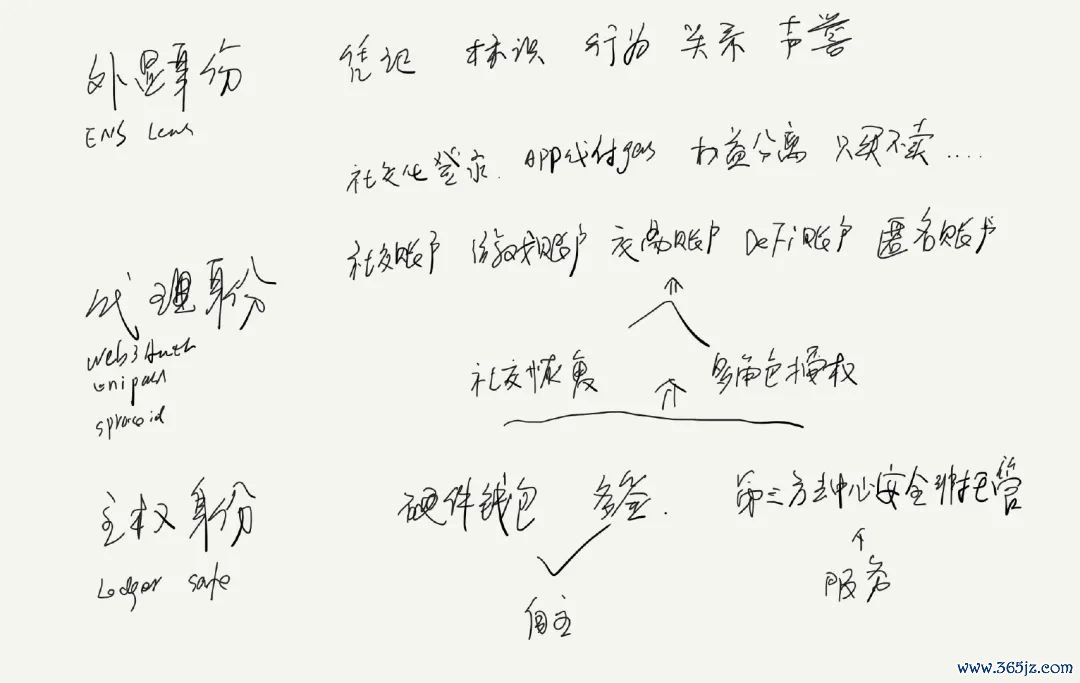 外显身份 凭记 标识 行为 关系 声誉
ENS Lens
社交化登录. APP代付gas 权益分离 只买不卖....
社交账户 游戏账户 交易账户 DeFi账户 匿名账户
代理身份
Web3Auth
Unipass
社交恢复 多角色授权
主权身份 硬件钱包 多签. 第三方去中心安全托管
Ledger safe
服务
自主
www.365jz.com